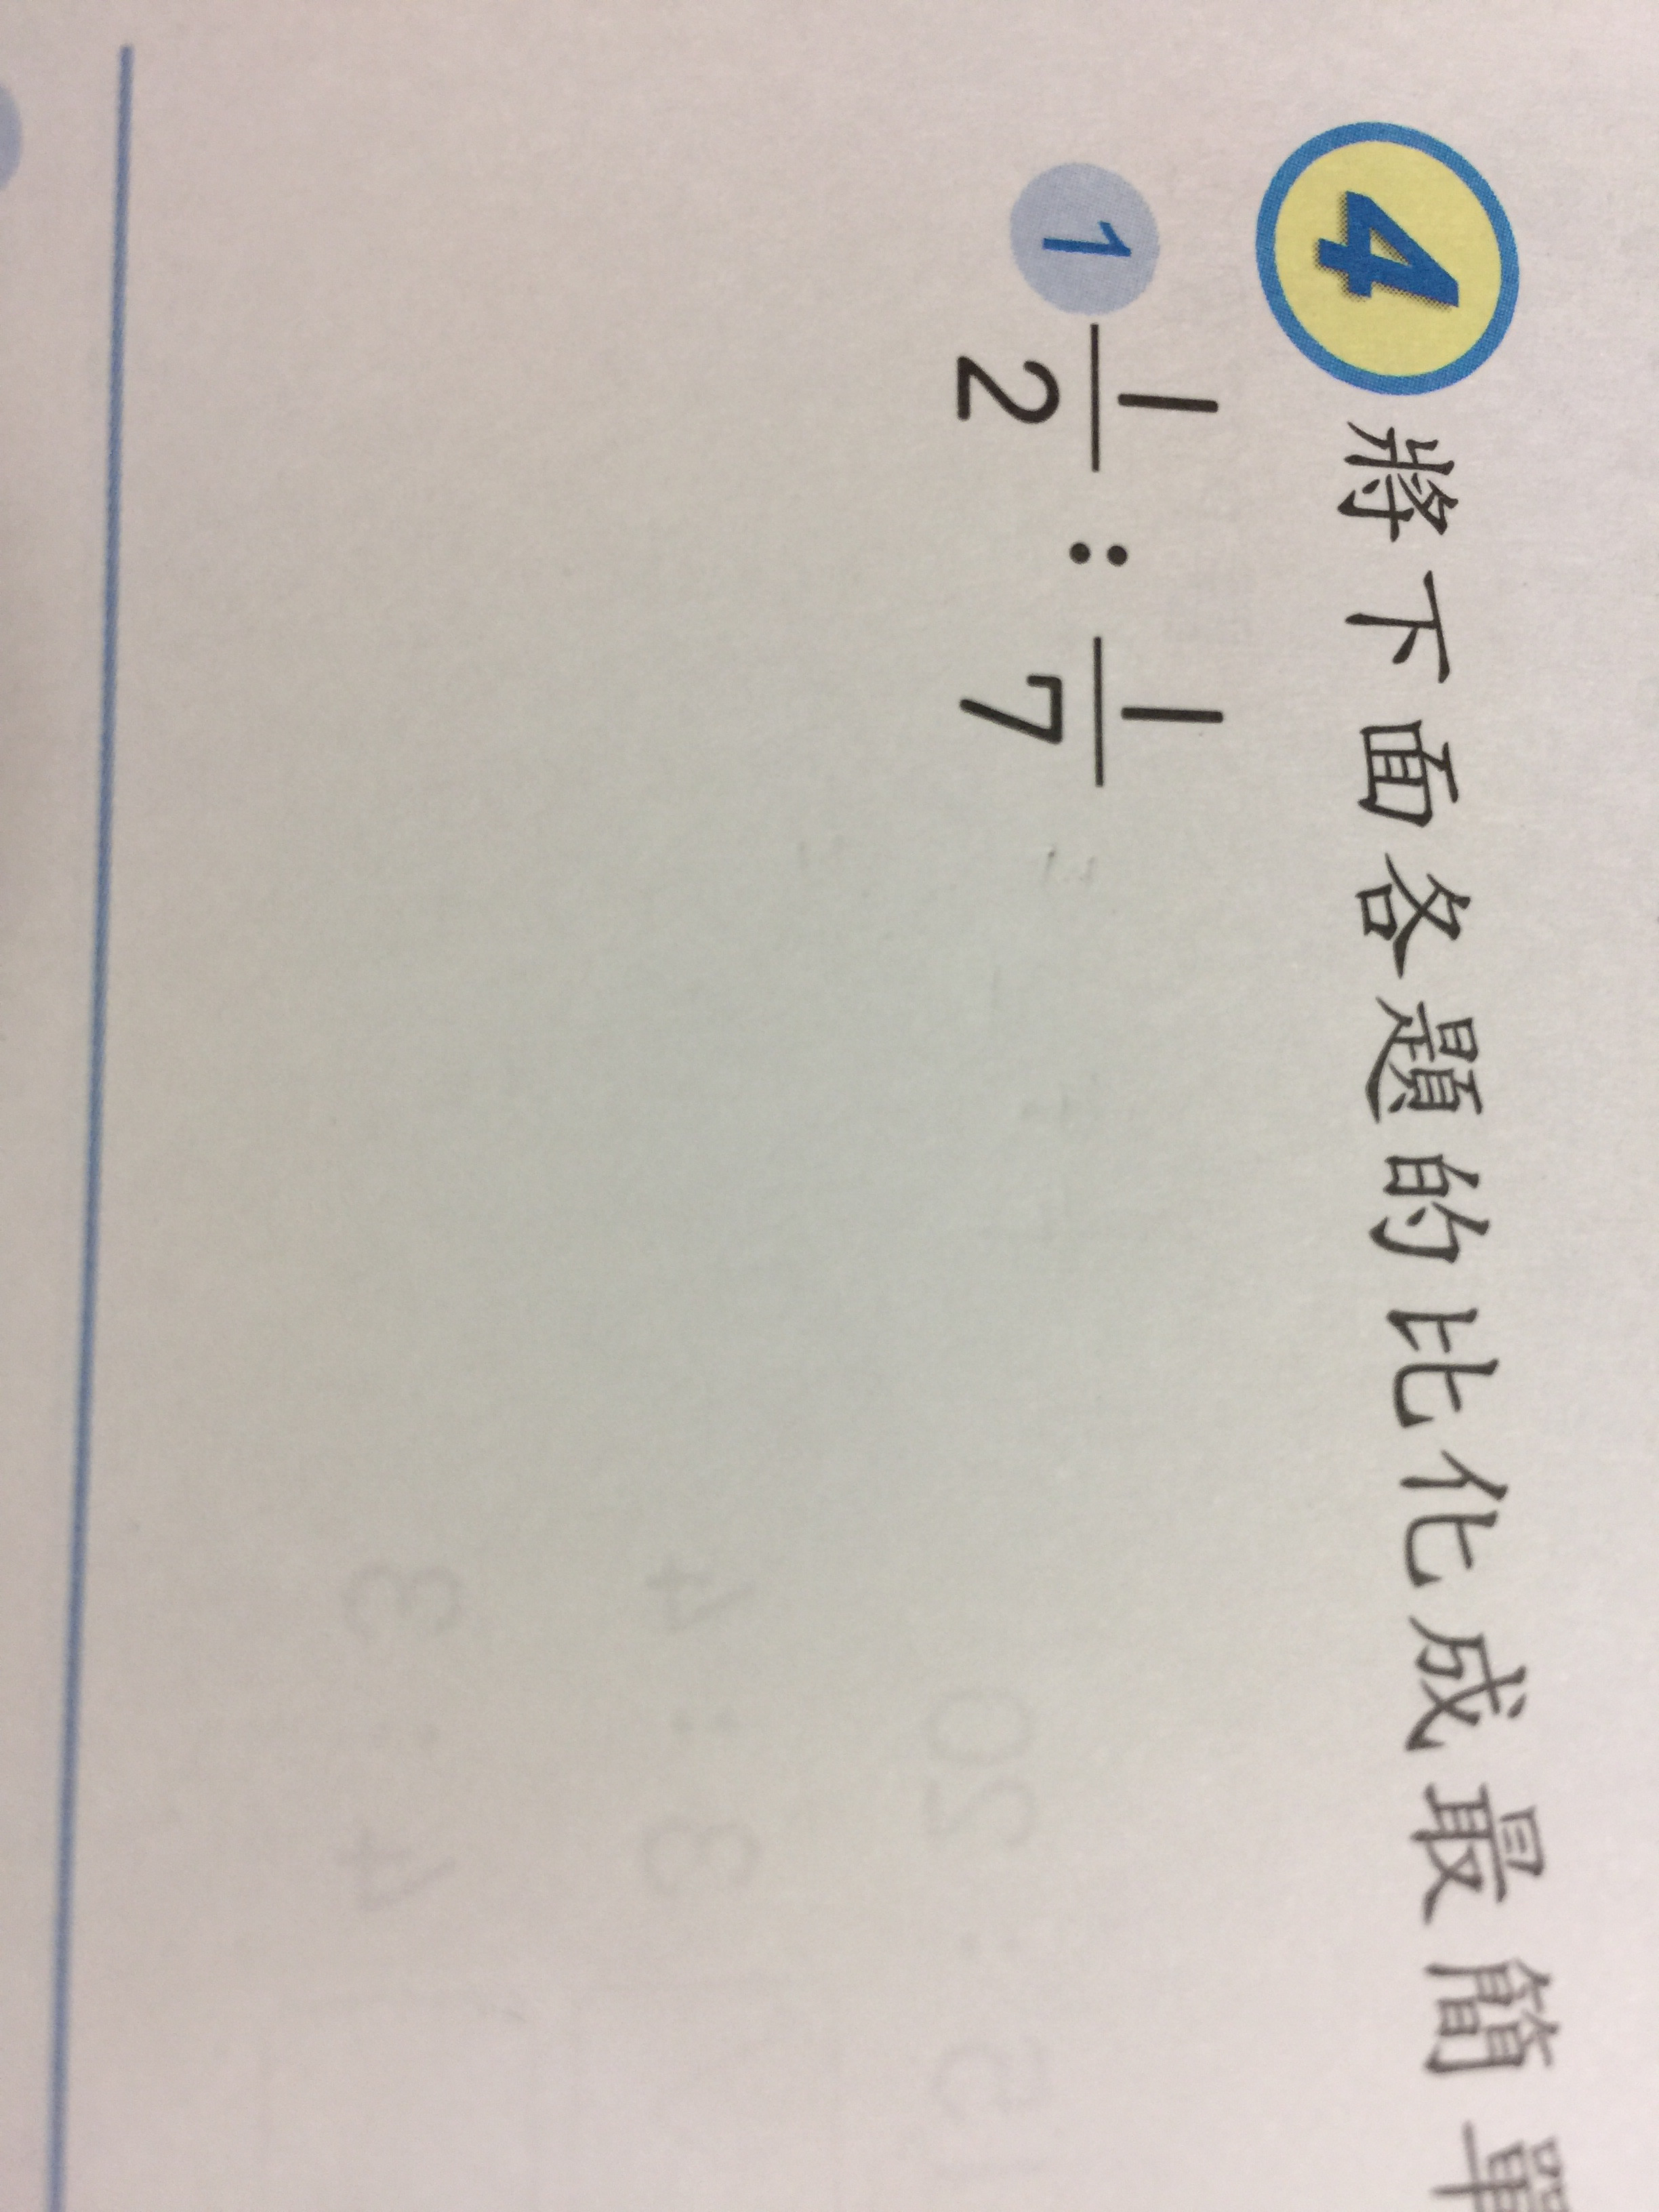 4 將下面各題的比化成最簡單
1 1/2 : 1/7